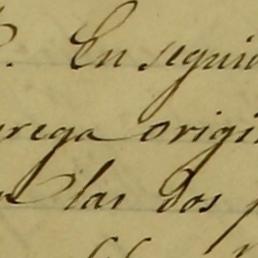 En seguid
rega origin
las dos p